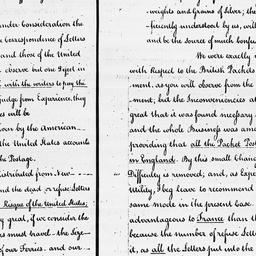 under Consideration the
Correspondence of Letters
and those of the United
observe but one Defect in
with the writers to pay the
judge from Experience, they
es will be
down by the American
the United States accounts
the Postage.
distributed from New
and the dead or refuse Letters
Risque of the United States;
great, if we consider the
must travel – the Size
of our Ferries – and our
weights and Grains of Silver; the
ficiently understood by us, will
and be the source of much confus
We were exactly
with Respect to the British Packets
ment, as you will observe from the
ment; but the Inconveniencies at
great that it was found necessary
and the whole Business was ame
providing that all the Packet Post
in England. By this small Chang
Difficulty is removed; and, as Expe
Utility, I beg leave to recommend
same mode in the present Case
advantageous to France than th
because the number of refuse Lette
it, as all the Letters put into the